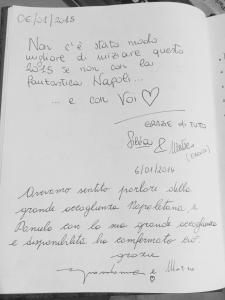 06/01/2015
Non c'è stato modo
migliore di iniziare questo
2015 se non con la
fantastica Napoli...
... e con Voi ♡
GRAZIE di TUTTO
Silvia &
6/01/2014
Avevamo sentito parlare della
grande accoglienza Napoletana e
Danilo con la sua grande accoglienza
e disponibilità ha confermato ciò
grazie
e Marco